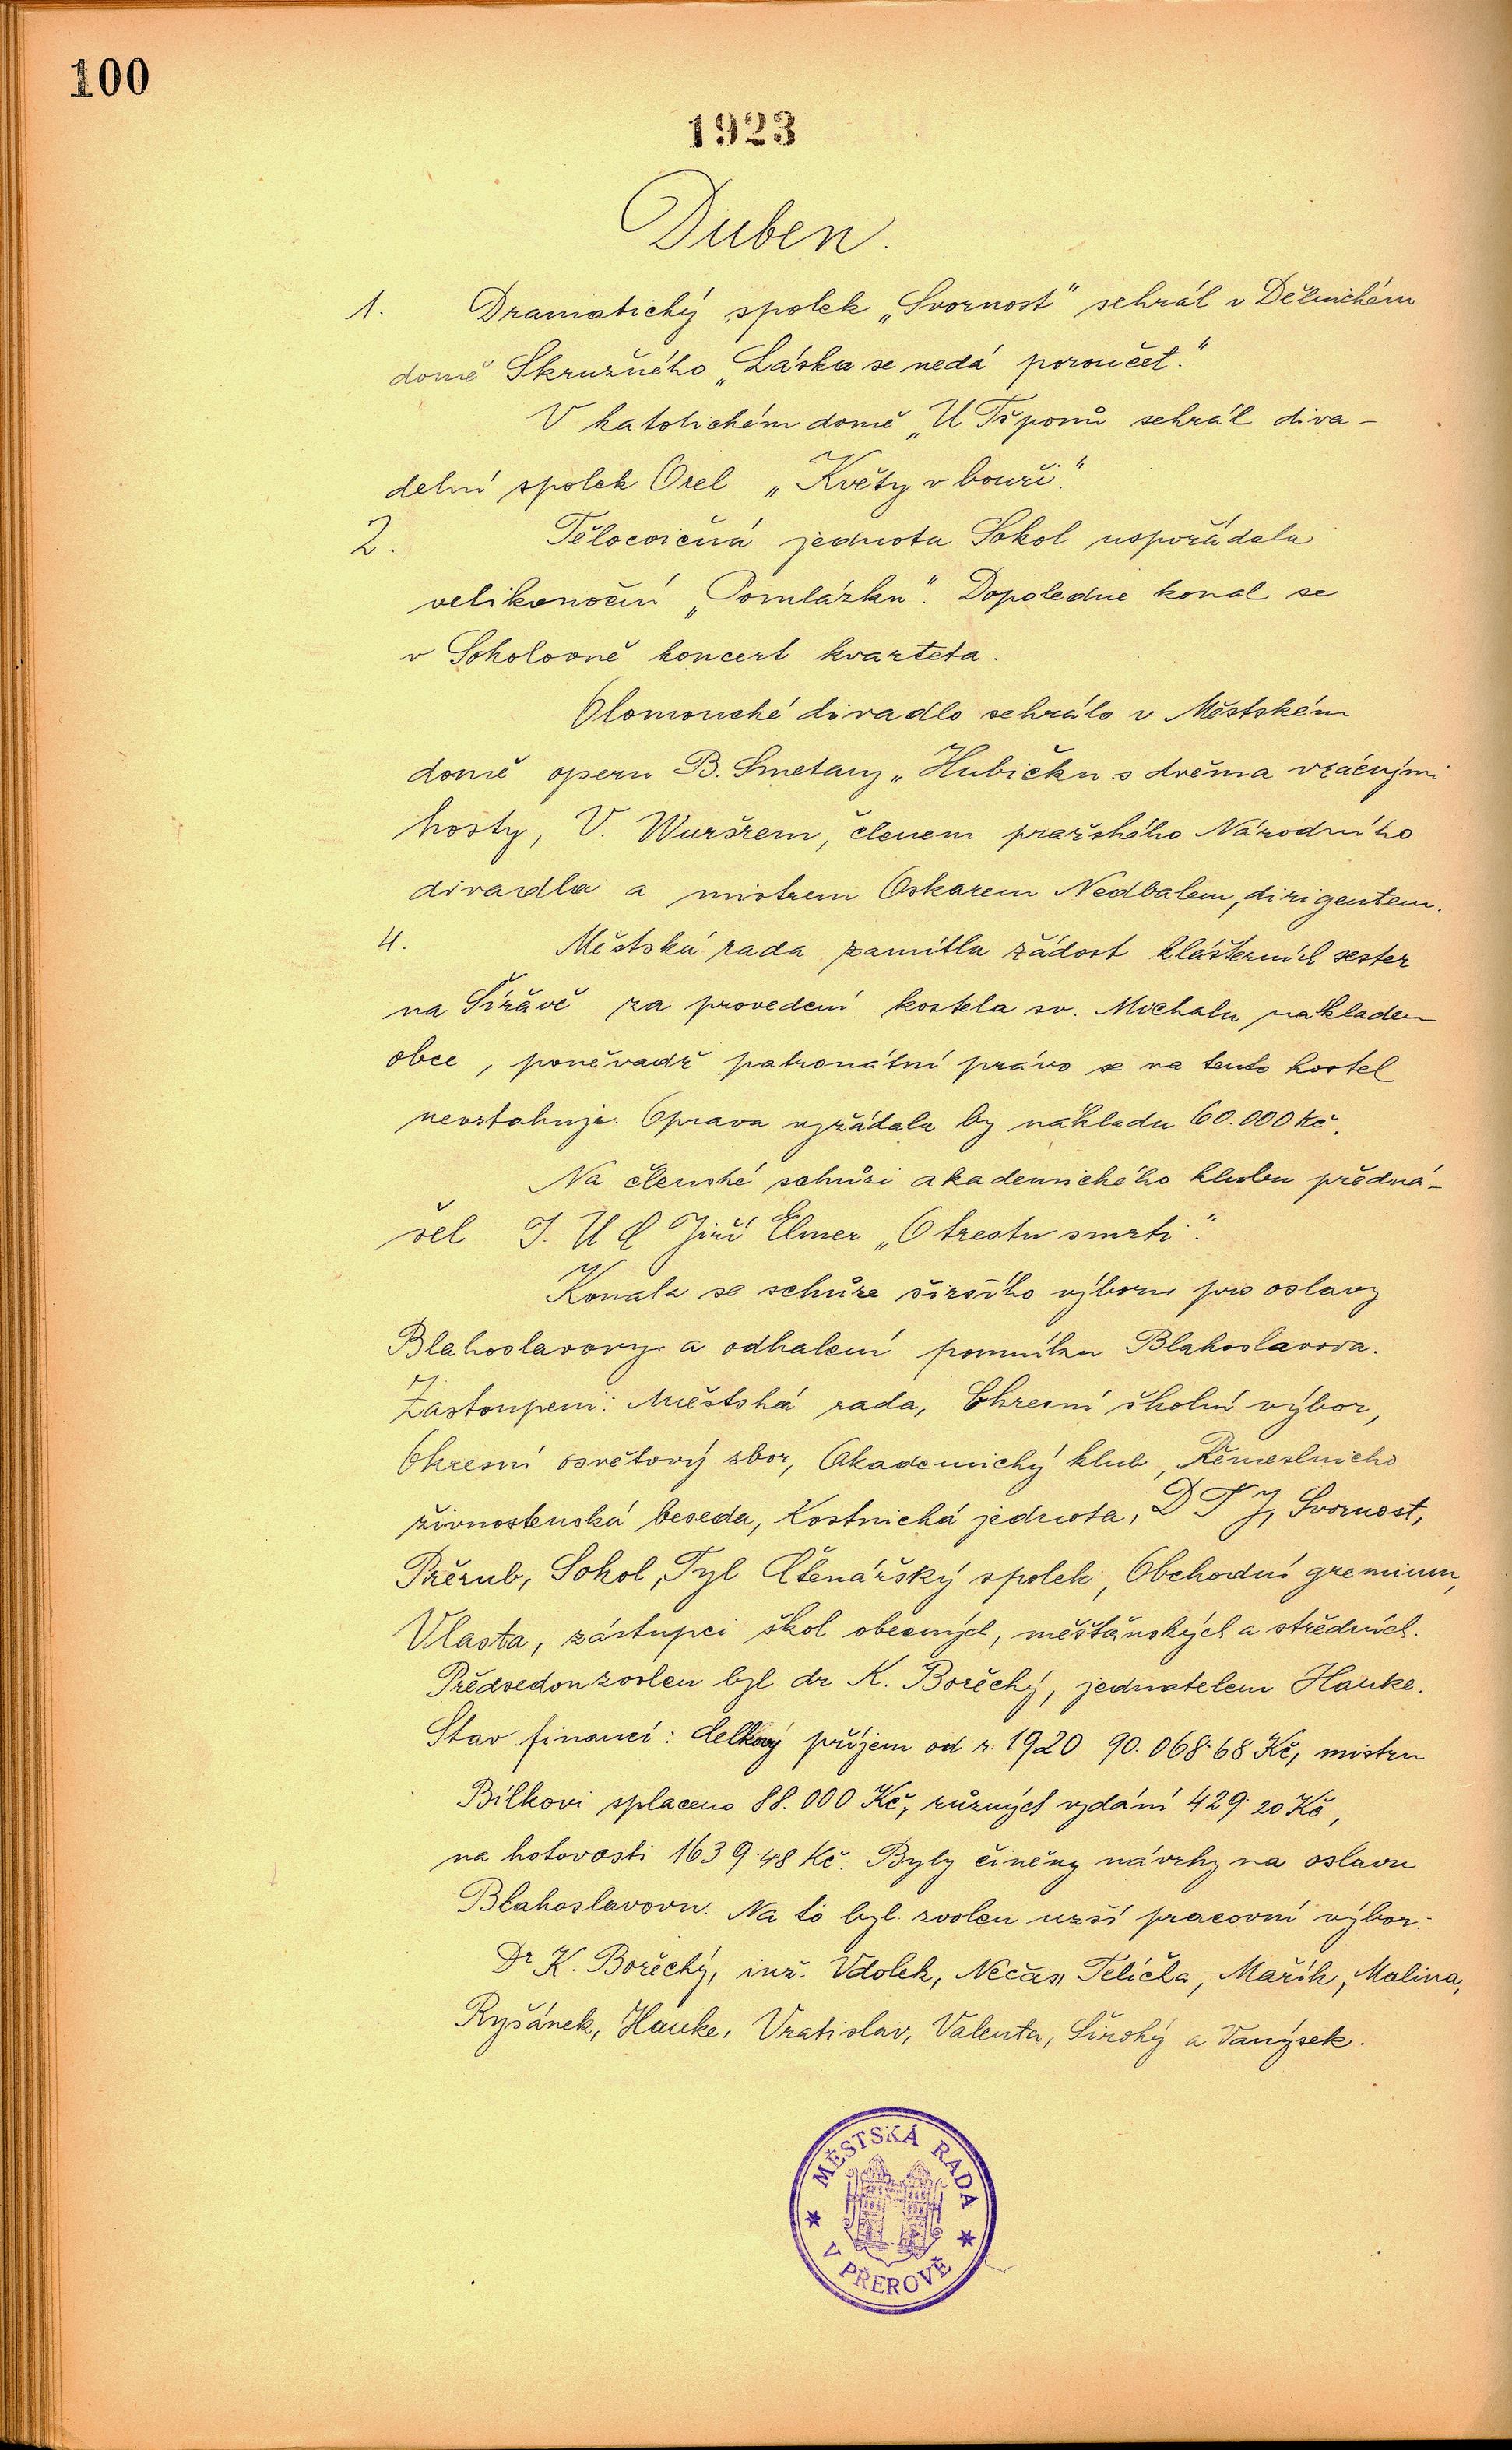 100
1923
Duben.
1. Dramatický spolek „Svornost" sehrál v Dělnickém
domě Skružného „Láska se nedá poroučet."
V katolickém domě „U Tšponů sehrál diva-
delní spolek Orel „Květy v bouři."
2. Tělocvičná jednota Sokol uspořádala
velikonoční „Pomlázku". Dopoledne konal se
v Sokolovně koncert kvarteta.
Olomoucké divadlo sehrálo v Městském
domě operu B. Smetany „Hubičku s dvěma vzácnými
hosty, V. Wuršrem, členem pražského Národního
divadla a mistrem Oskarem Nedbalem, dirigentem.
4. Městská rada zamítla žádost klášterních sester
na Šířavě za provedení kostela sv. Michala nákladem
obce, poněvadž patronátní právo se na tento kostel
nevztahuje. Oprava vyžádala by nákladu 60.000 Kč.
Na členské schůzi akademického klubu předná-
šel J. U C Jiří Elmer „O trestu smrti".
Konala se schůze širšího výboru pro oslavy
Blahoslavovy a odhalení pomníku Blahoslavova.
Zastoupeni: Městská rada, Okresní školní výbor,
Okresní osvětový sbor, Akademický klub, Řemeslnicko
živnostenská beseda, Kostnická jednota, D T J, Svornost,
Přerub, Sokol, Tyl Čtenářský spolek, Obchodní gremium,
Vlasta, zástupci škol obecných, měšťanských a středních.
Předsedou zvolen byl dr K. Bořěcký, jednatelem Hauke.
Stav financí: Celkový příjem od r. 1920 90.068·68 Kč, mistru
Bílkovi splaceno 88.000 Kč, různých vydání 429·20 Kč,
na hotovosti 1639·48 Kč. Byly činěny návrhy na oslavu
Blahoslavovu. Na to byl zvolen užší pracovní výbor:
Dr K. Bořěcký, inž. Vdolek, Nečas, Telička, Mařík, Malina,
Ryšánek, Hauke, Vratislav, Valenta, Široký a Vanýsek.
MĚSTSKÁ RADA
V PŘEROVĚ